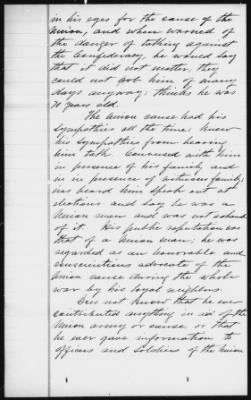 in his eyes for the cause of the
Union, and when warned of
the danger of talking against
the Confederacy, he would say
that it did not matter, they
could not rob him of many
days anyway; thinks he was
70 years old.
The Union cause had his
sympathies all the time: knew
his sympathies from hearing
him talk. Conversed with him
in presence of his family and
in presence of witness' family;
has heard him speak out at
elections and say he was a
Union man and was not ashamed
of it. His public reputation was
that of a Union man; he was
regarded as an honorable and
conscientious advocate of the
Union cause during the whole
war by his loyal neighbors.
Does not know that he ever
contributed anything in aid of the
Union army or cause or that
he ever gave information to
officers and soldiers of the Union